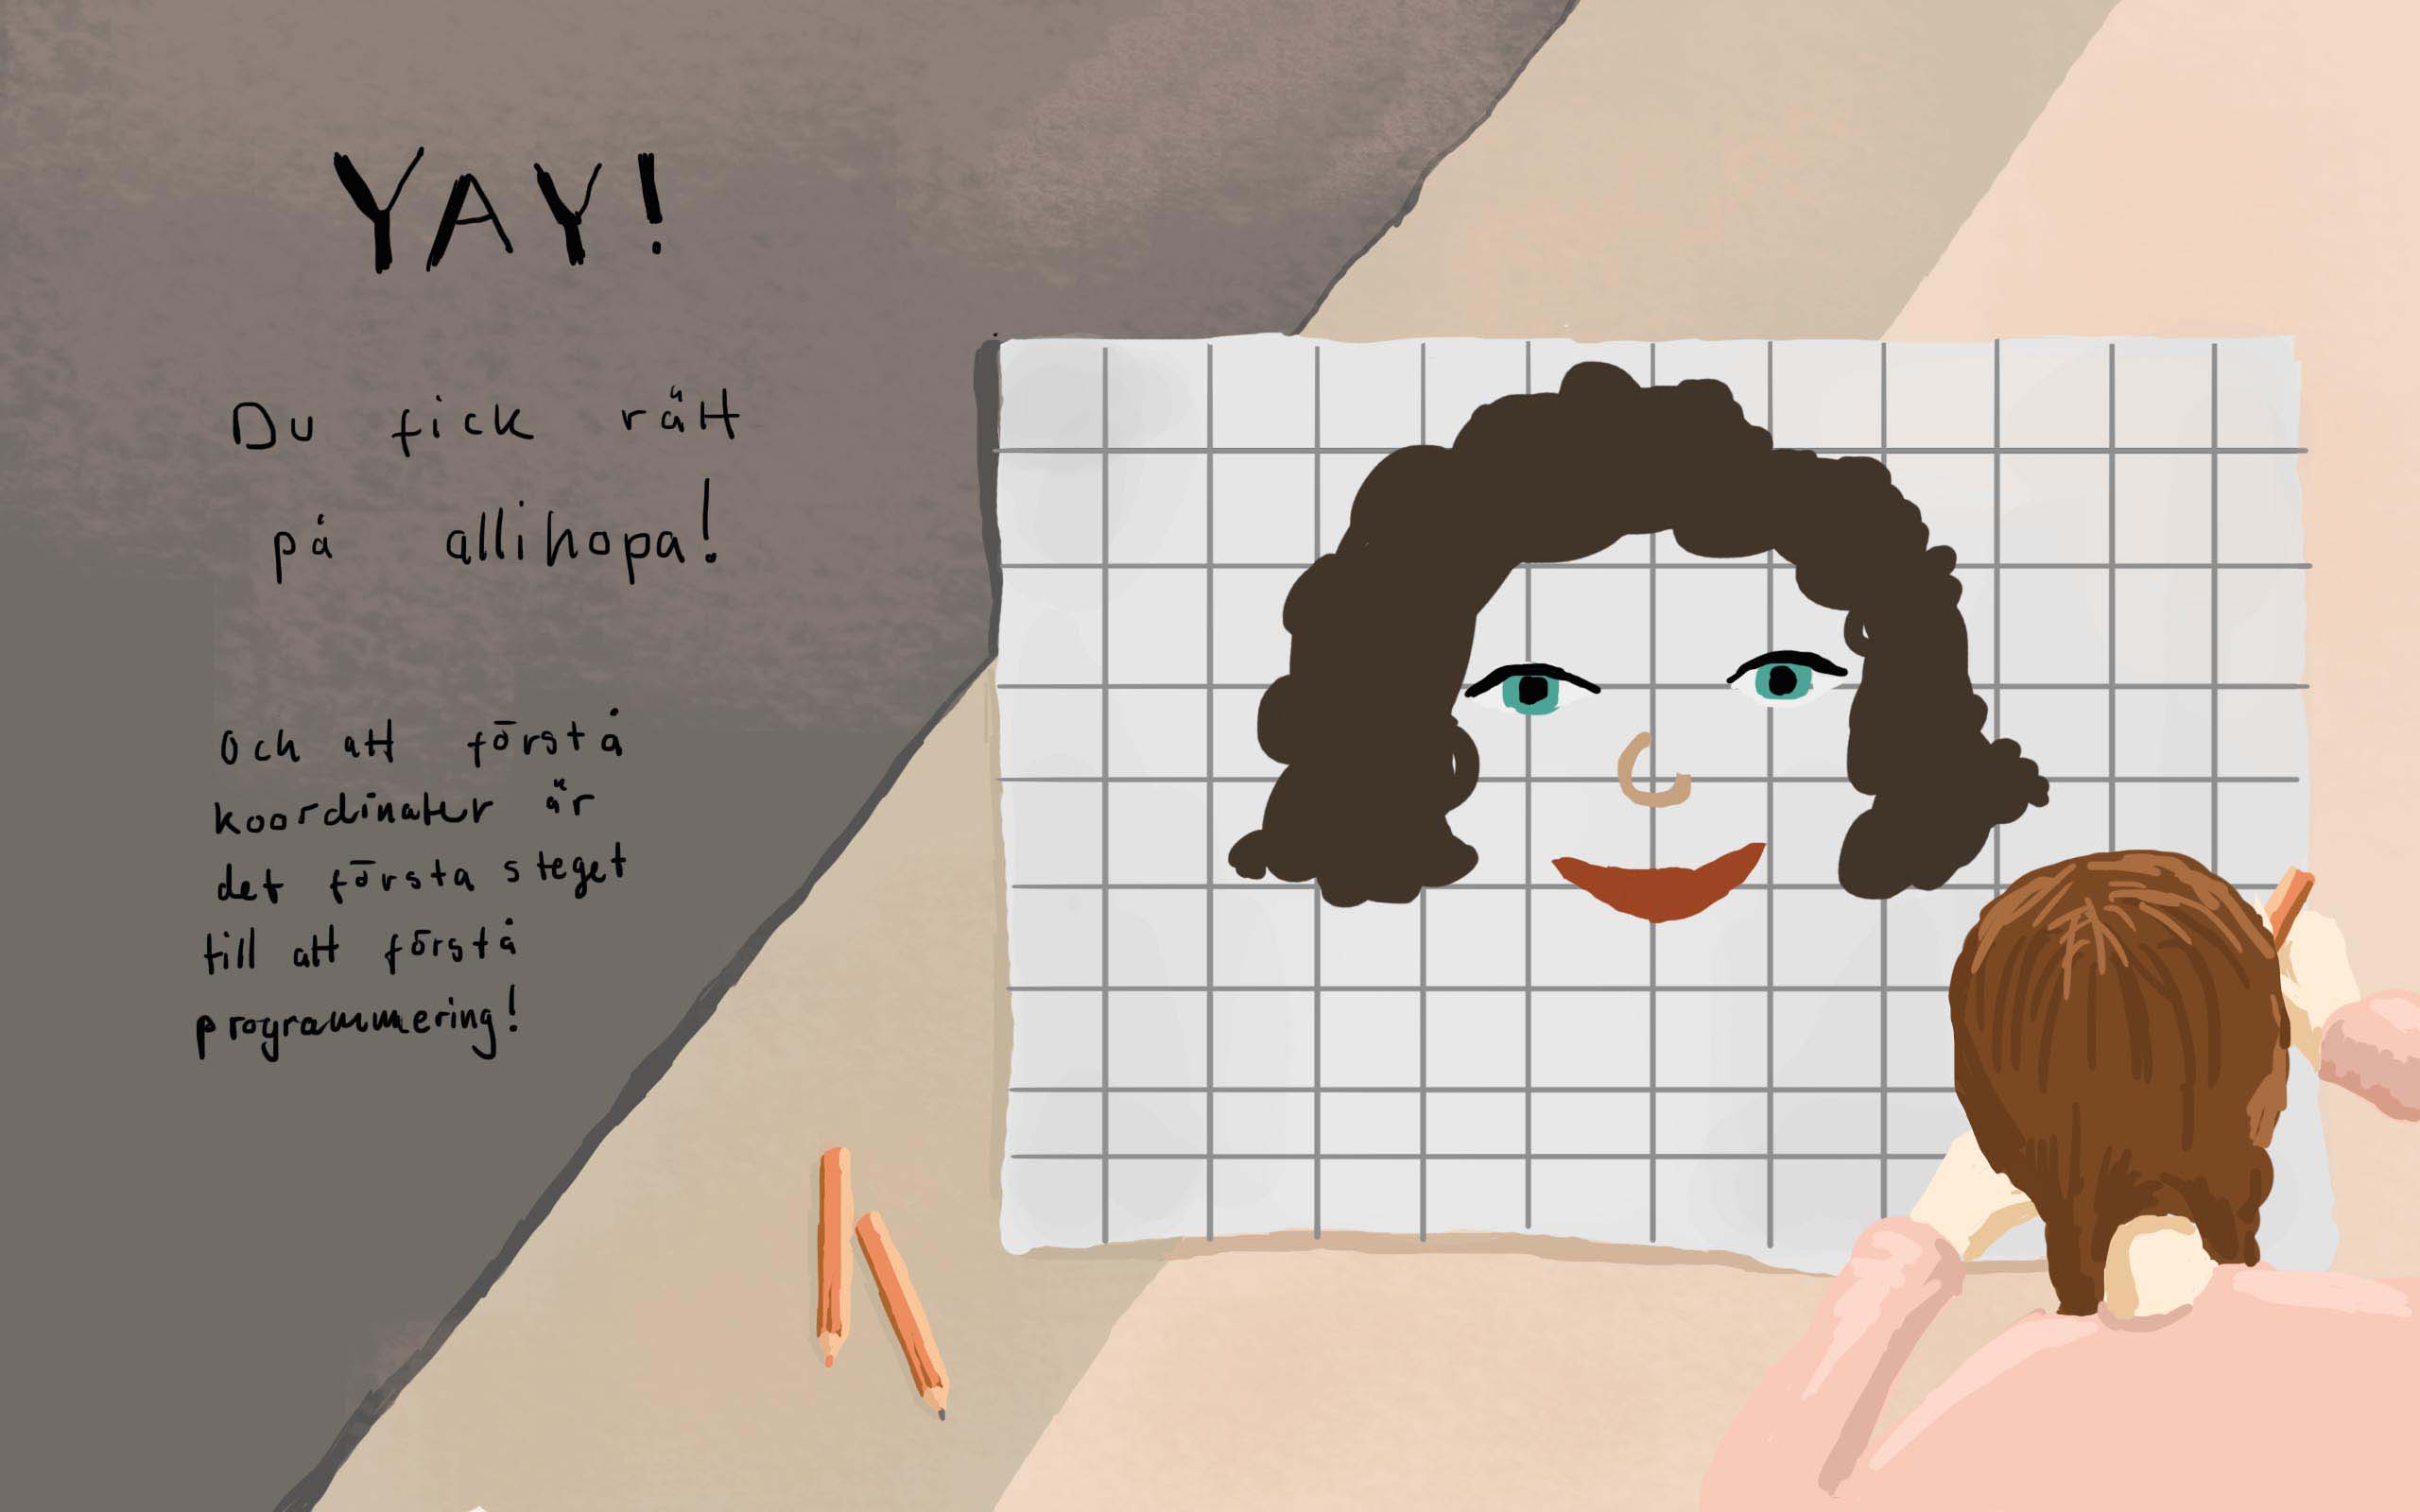 YAY!
Du fick rätt
på allihopa!
Och att förstå
koordinater är
det första steget
till att förstå
programmering!